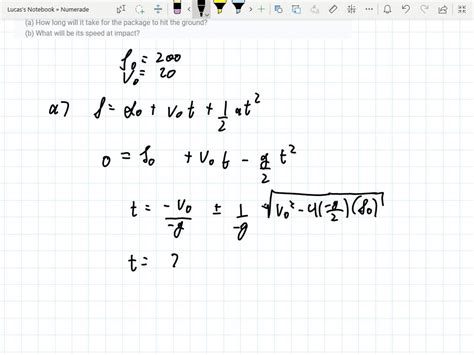 Lucas's Notebook « Numerade
(a) How long will it take for the package to hit the ground?
(b) What will be its speed at impact?
s₀ = 200
v₀ = 20
a) s = s₀ + v₀t + 1/2 at²
0 = s₀ + v₀t - g/2 t²
t = -v₀/-g ± 1/-g √(v₀² - 4(-g/2)(s₀))
t = ?